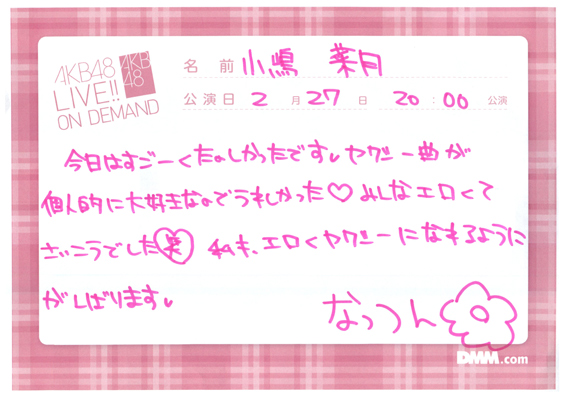 AKB48
LIVE!!
ON DEMAND
AKB
48
名前 小嶋 菜月
公演日 2月27日 20:00 公演
今日はすごーくたのしかったです。セクシー曲が
個人的に大好きなのでうれしかった♡みんなエロくて
さいこうでした笑 私も、エロくセクシーになれるように
がんばります。
なっつん
DMM.com